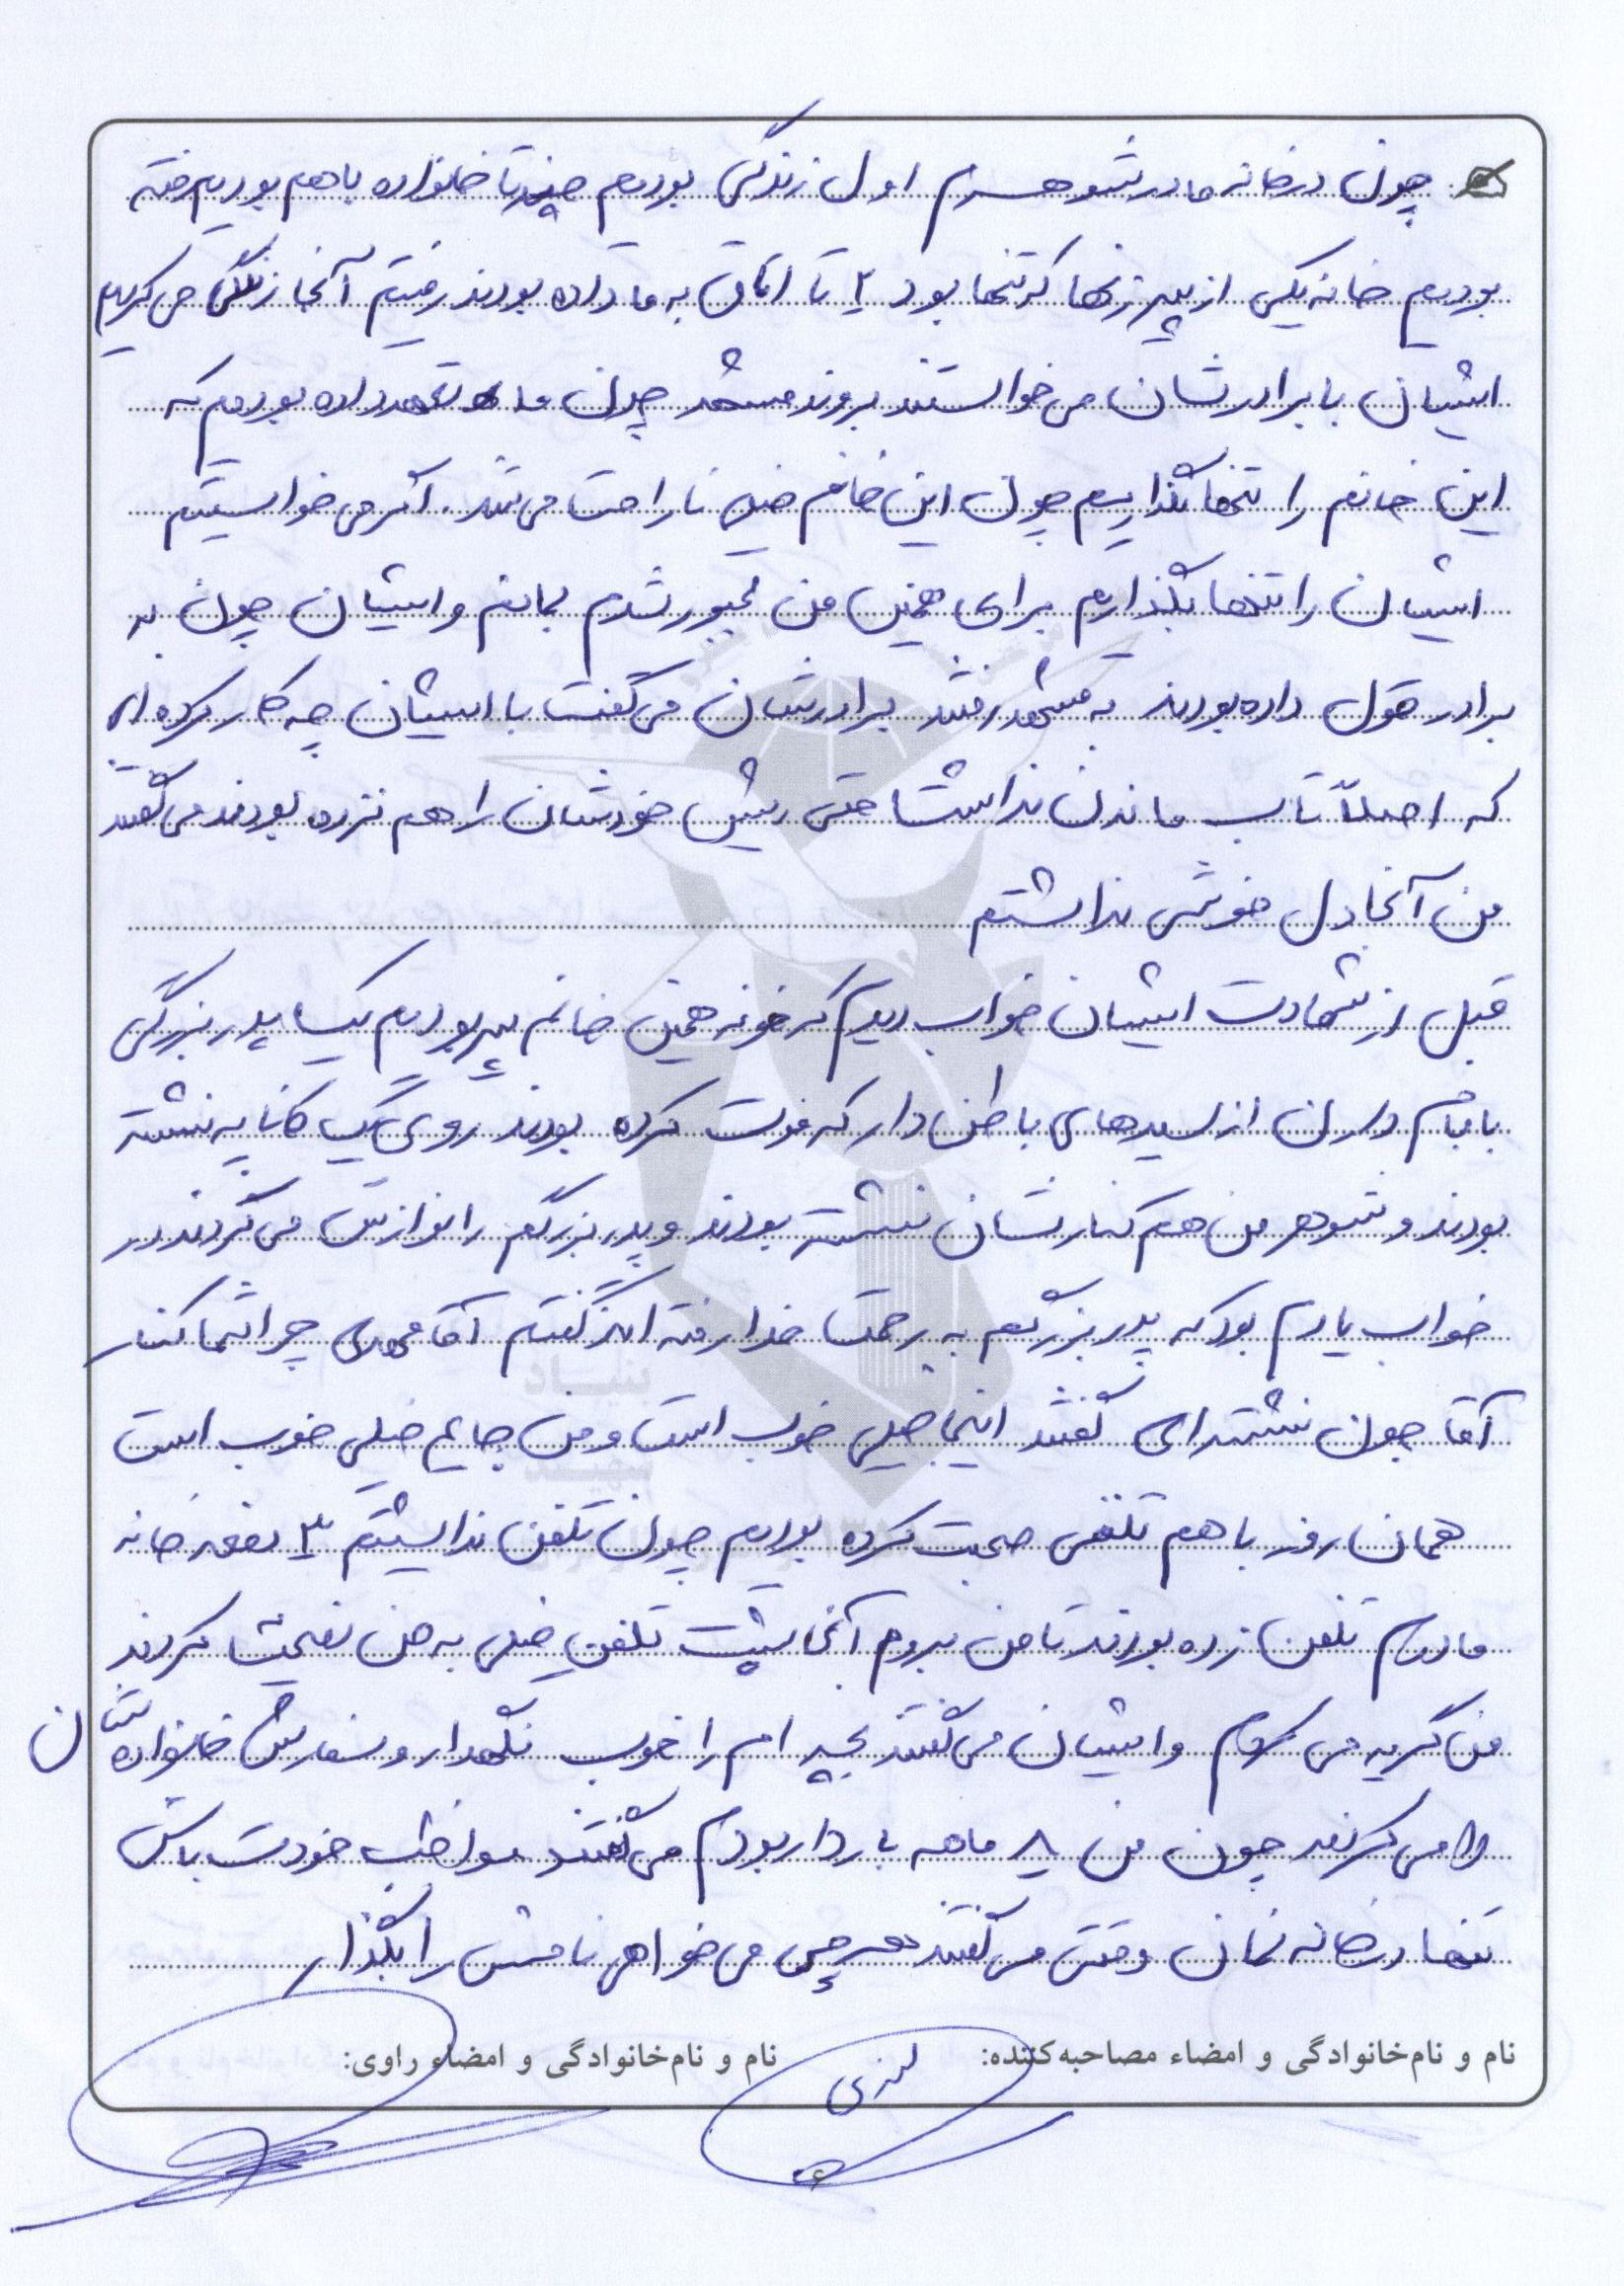 چون در خانه مادر شوهرم اول زندگی بودیم چندتا خانواده با هم بودیم رفته
بودیم خانه یکی از پیرزنها که تنها بود ۲ تا اتاق به ما داده بودند رفتیم آنجا زندگی می کردیم
ایشان با برادرشان می خواستند بروند مشهد چون ما تعهد داده بودیم که
این خانم را تنها نگذاریم چون این خانم خیلی ناراحت می شد. اگر می خواستیم
ایشان را تنها بگذاریم برای همین من مجبور شدم بمانم و ایشان چون به
برادر قول داده بودند به مشهد رفتند برادرشان می گفت با ایشان چه کار کرده ای
که اصلاً تاب ماندن نداشت حتی ریش خودشان را هم نزده بودند می گفتند
من آنجا دل خوشی نداشتم
قبل از شهادت ایشان خواب دیدم که خونه همین خانم پیر بودیم یک پدربزرگی
با دار که فوت کرده بودند روی یک کاناپه نشسته
بودند و شوهر من هم کنارشان نشسته بودند و پدربزرگم را نوازش می کردند در
خواب یادم بود که پدربزرگم به رحمت خدا رفته اند گفتم آقا مهدی چرا شما کنار
آقا جون نشسته ای گفتند اینجا خیلی خوب است و من جایم خیلی خوب است
همان روز با هم تلفنی صحبت کرده بودیم چون تلفن نداشتیم ۳ دفعه خانه
مادرم تلفن زده بودند تا من بروم آنجا پشت تلفن خیلی به من نصیحت کردند
من گریه می کردم و ایشان می گفتند بچه ام را خوب نگهدار و سفارش خانواده شان
را می کردند چون من ۸ ماهه باردار بودم می گفتند مواظب خودت باش
تنها در خانه نمان وقتی می گفتند هرچی می خواهی نامش را بگذار
نام و نام‌خانوادگی و امضاء مصاحبه‌کننده:
نام و نام‌خانوادگی و امضاء راوی: